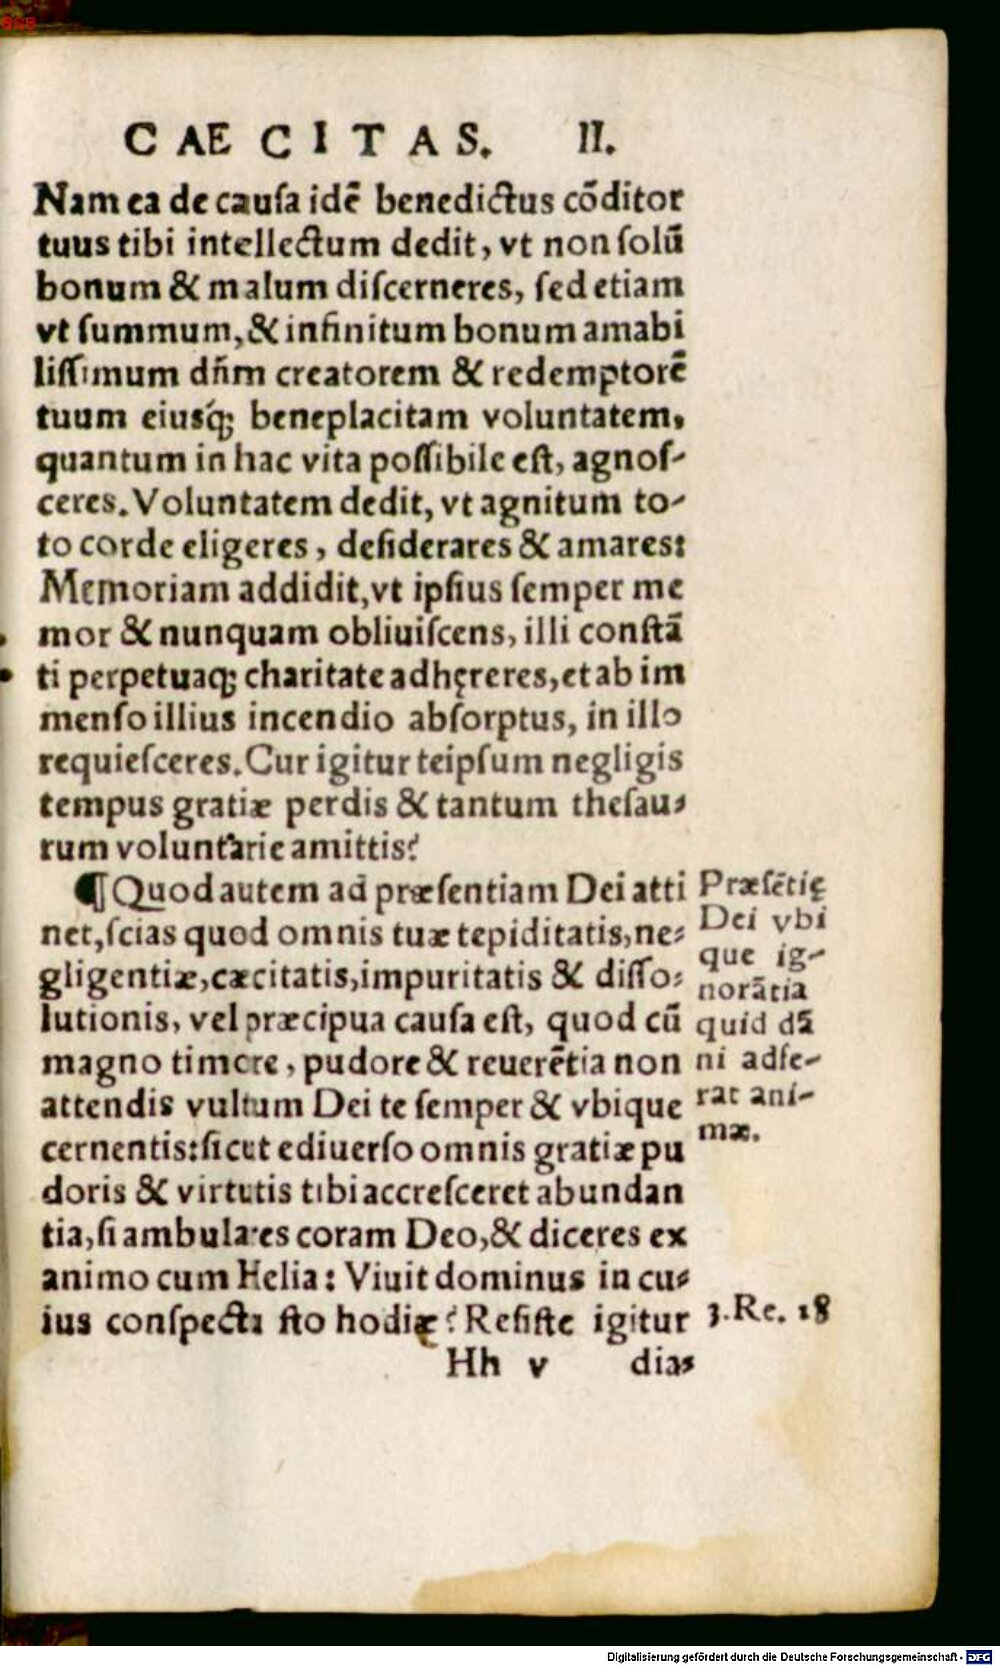 CAECITAS. II.
Nam ea de cauſa idē benedictus cōditor
tuus tibi intellectum dedit, vt non ſolū
bonum & malum diſcerneres, ſed etiam
vt ſummum, & infinitum bonum amabi
liſſimum dn̄m creatorem & redemptorē
tuum eiusq́; beneplacitam voluntatem,
quantum in hac vita poſſibile eſt, agnoſ-
ceres. Voluntatem dedit, vt agnitum to-
to corde eligeres, deſiderares & amares:
Memoriam addidit, vt ipſius ſemper me
mor & nunquam obliuiſcens, illi conſtā
ti perpetuaq; charitate adhęreres, et ab im
menſo illius incendio abſorptus, in illo
requieſceres. Cur igitur teipſum negligis
tempus gratiæ perdis & tantum theſau-
rum voluntarie amittis?
¶ Quod autem ad præſentiam Dei atti
net, ſcias quod omnis tuæ tepiditatis, ne-
gligentiæ, cæcitatis, impuritatis & diſſo-
lutionis, vel præcipua cauſa eſt, quod cū
magno timore, pudore & reuerētia non
attendis vultum Dei te ſemper & vbique
cernentis: ſicut ediuerſo omnis gratiæ pu
doris & virtutis tibi accreſceret abundan
tia, ſi ambulares coram Deo, & diceres ex
animo cum Helia: Viuit dominus in cu-
ius conſpectu ſto hodię? Reſiſte igitur
Hh v dia-
Præſētię
Dei vbi
que ig-
norātia
quid dā
ni adfe-
rat ani-
mæ.
3. Re. 18
BSB
Digitalisierung gefördert durch die Deutsche Forschungsgemeinschaft - DFG